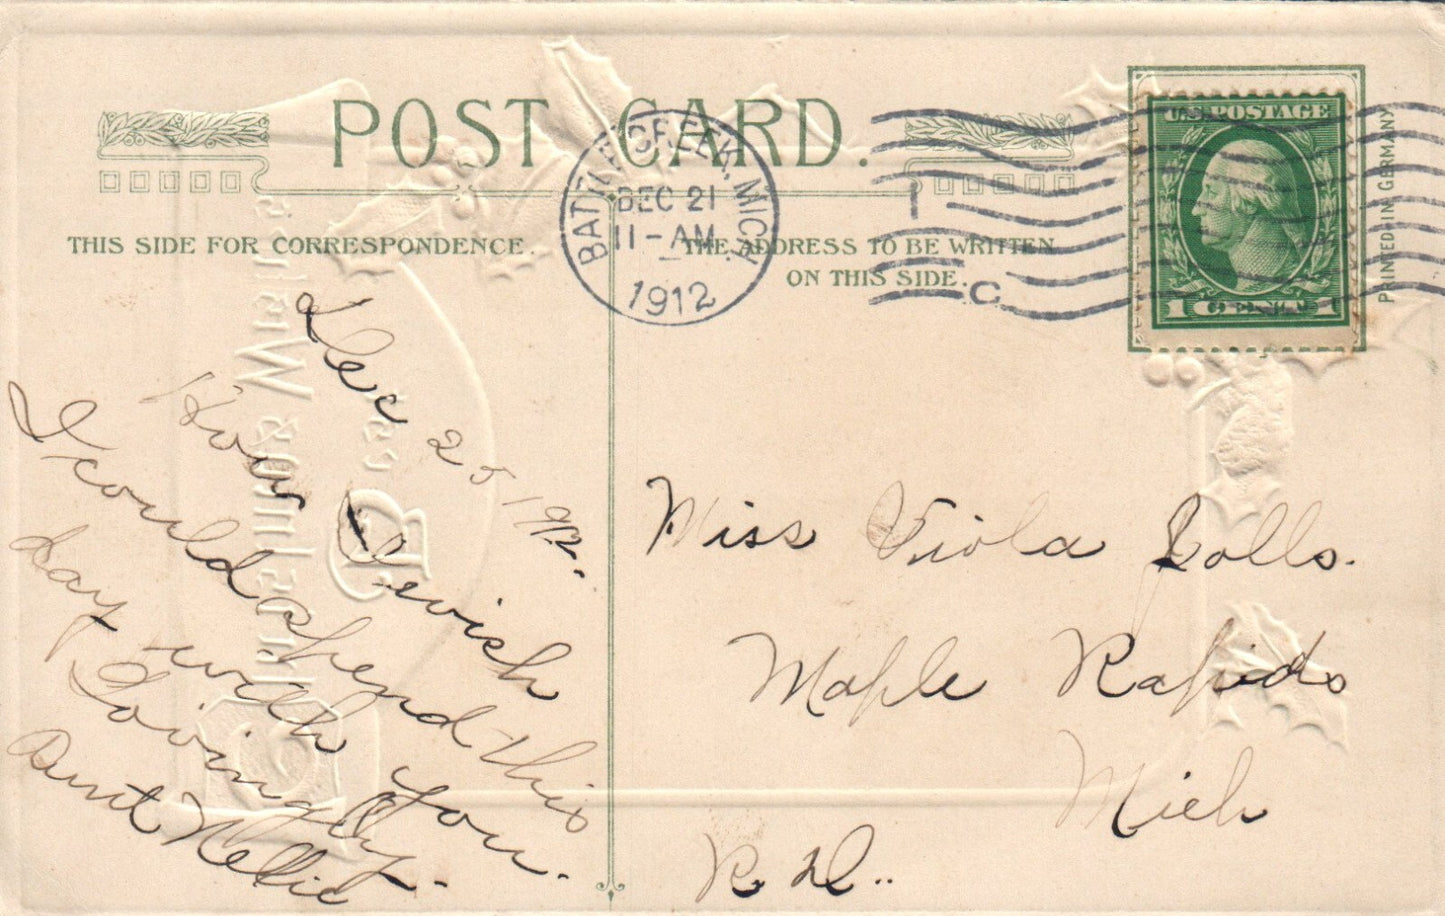 POST CARD.
THIS SIDE FOR CORRESPONDENCE.
THE ADDRESS TO BE WRITTEN
ON THIS SIDE.
BATTLE CREEK, MICH.
DEC 21
11-AM
1912
1
C
U.S. POSTAGE
1 CENT 1
PRINTED IN GERMANY
Dec 25 1912.
How I wish
I could spend this
day with you.
Lovingly.
Aunt Nellie
Miss Viola Solls.
Maple Rapids
Mich
R. D..